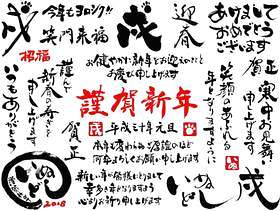 戌
今年もヨロシク!!
笑門来福
招福
戌
迎春
あけまして
おめでとう
ございます
お健やかに新年をお迎えのことと
お慶び申し上げます
謹んで
新春の寿ぎを
申し上げます
賀正
いつもありがとう
謹賀新年
平成三十年元旦
本年も変わらぬご厚情のほど
何卒よろしくお願い申し上げます
新しい年が皆様にとりまして
幸多き年となりますよう
心よりお祈り申し上げます
笑顔のあふれる
年となりますように
賀正
寒中お見舞い
申し上げます
いぬ
いぬどし
いぬどし
2018